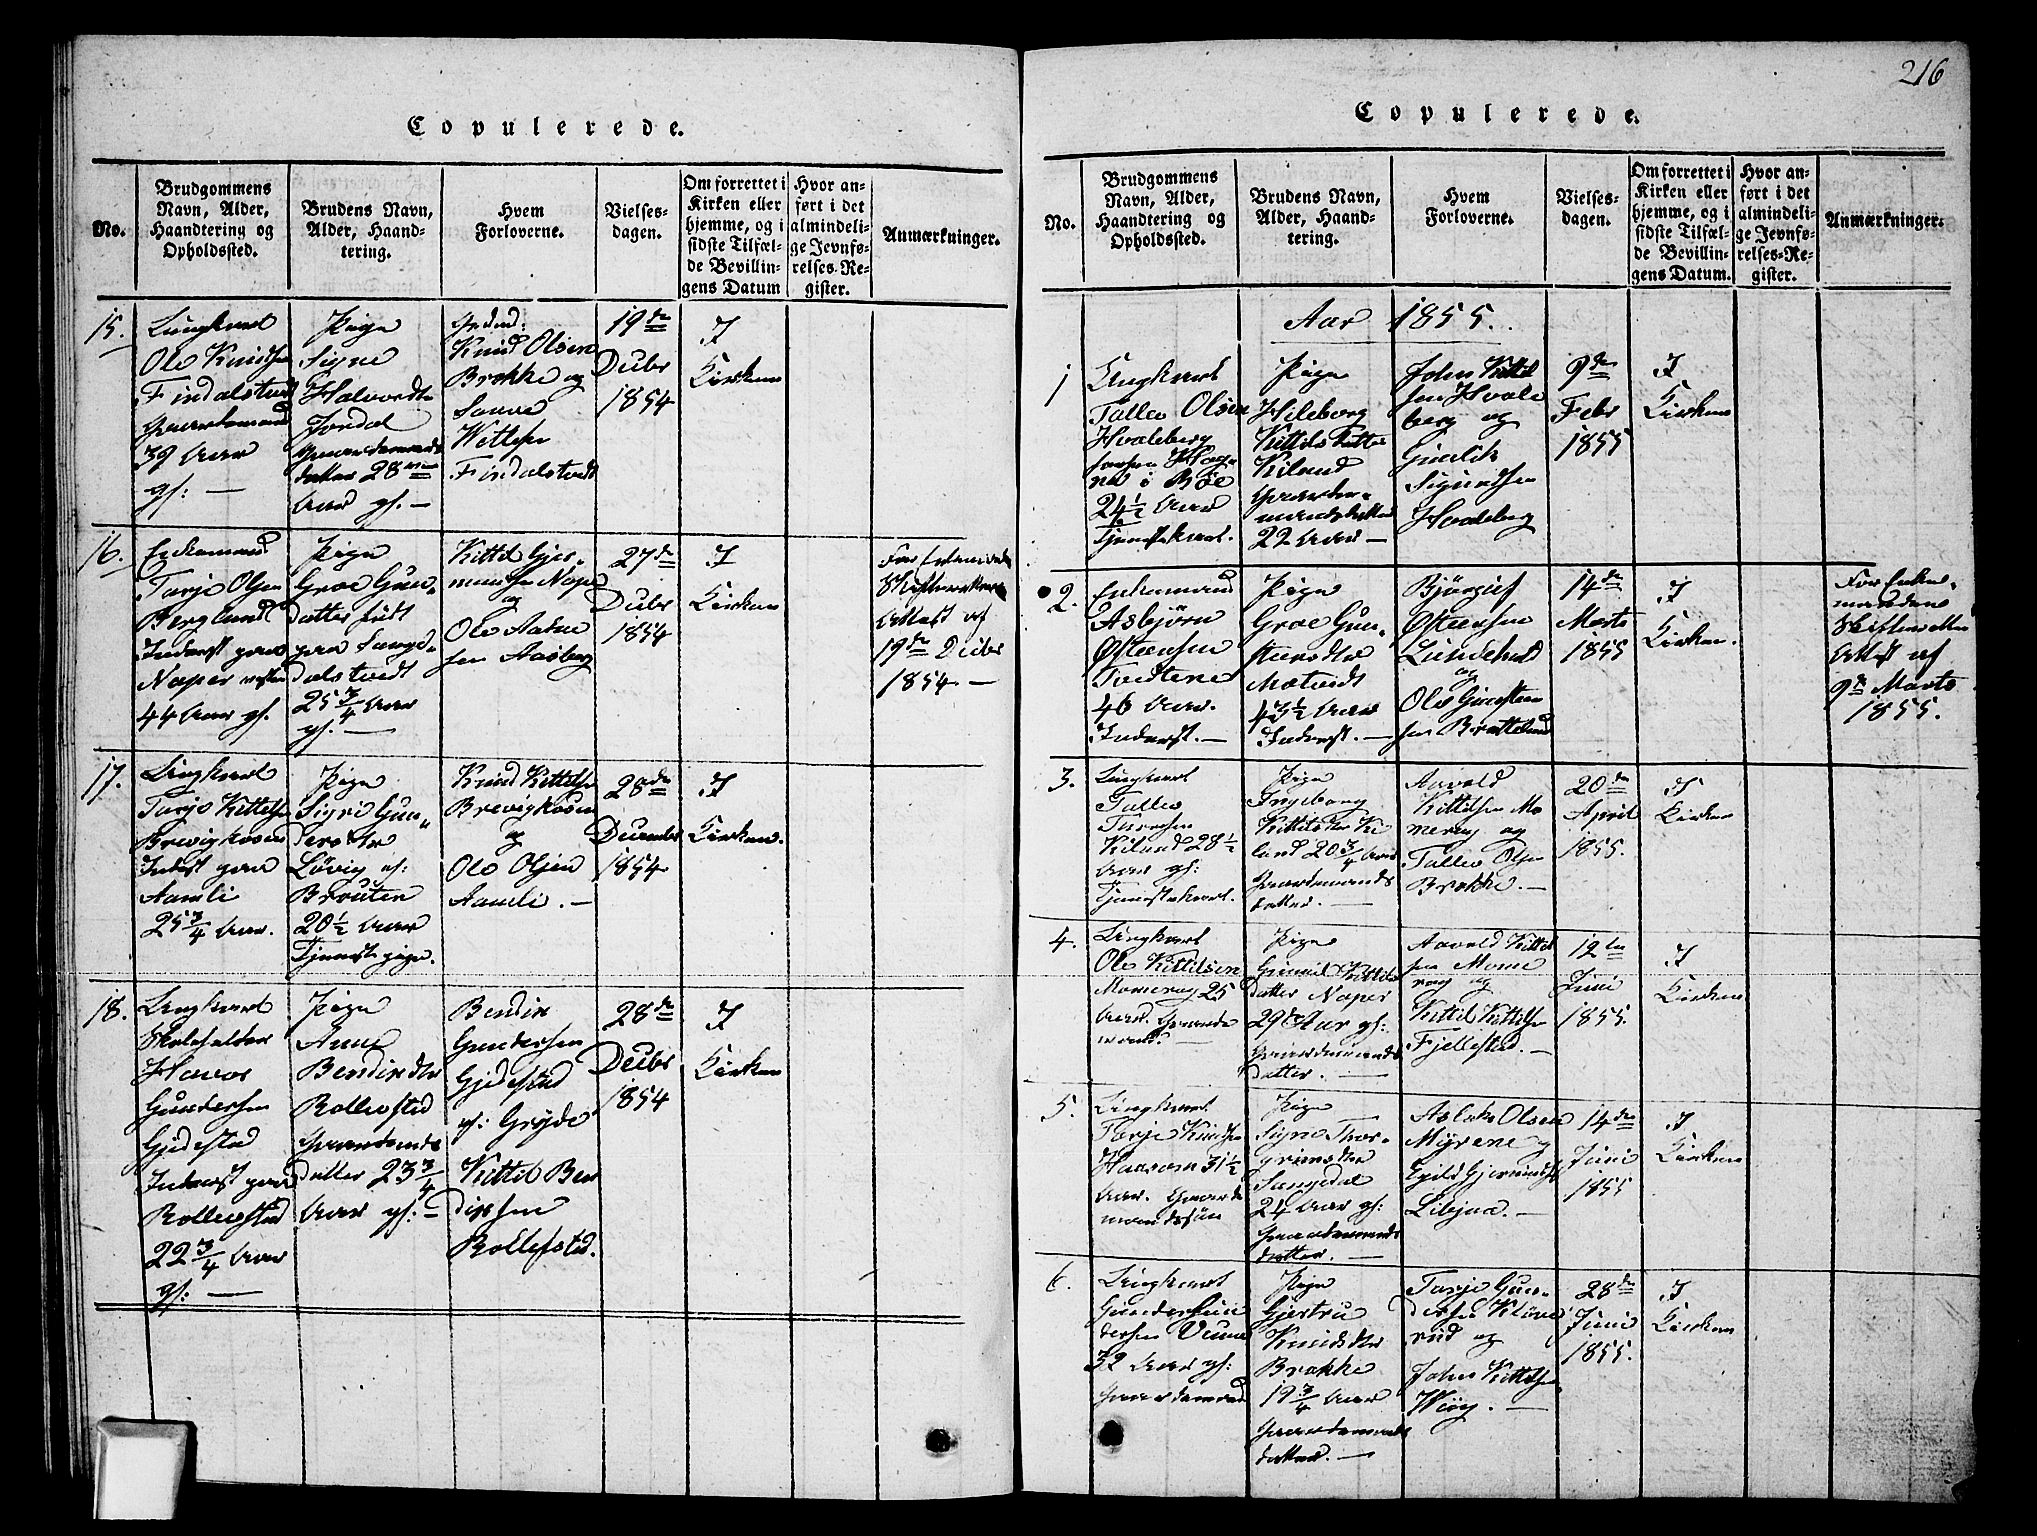 216
Copulerede.
No.
Brudgommens
Navn, Alder,
Haandtering og
Opholdssted.
Brudens Navn,
Alder, Haand-
tering.
Hvem
Forloverne.
Vielses-
dagen.
Om forrettet i
Kirken eller
hjemme, og i
sidste Tilfæl-
de Bevillin-
gens Datum
Hvor an-
ført i det
almindeli-
ge Jevnfø-
relses-Re-
gister.
Anmærkninger.
15.
Ungkarl
Ole Knudsen
Findalstvedt
Gaardmand
39 Aar
gl: —
Pige
Signe
Halvorsdtr
Jordal
Gaardmands
datter 28
Aar gl. —
Knud Olsen
Brokke og
Findalstvedt
19de
Decbr
1854
I
Kirken
16.
Enkemand
Tarje Olsen
Berglund
Inderst paa
Naper
44 Aar gl.
Pige
Groe Gun-
datter født
paa Lange-
dalstvedt
25 3/4 Aar
gl. —
Kittil Gjer-
mundsen Naper
og
Ole Aadne
sen Aasberg
27de
Decbr
1854
I
Kirken
For Enkemanden
Attest af
19de Decbr
1854. —
17.
Ungkarl
Tarje Kittelsen
Brevigkaasen
Inderst paa
Aamli
25 3/4 Aar.
Pige
Sigri Gun-
dersdtr
Løvig
Brouten
20 1/2 Aar
Tjenestpige.
Knud Kittelsen
Brevigkaasen
og
Ole Olsen
Aamli. —
28de
December
1854
I
Kirken.
18.
Ungkarl
Skoleholder
Gundersen
Gjedestad
Inderst paa
Rollefstad
22 3/4 Aar
gl: —
Pige
Anne
Bendixdtr
Rollefstad
Gaardmands
datter 23 3/4
Aar gl: —
Bendix
Gundersen
Gjedestad
og
Kittil Ben
dixsen
Rollefstad.
28de
Decbr
1854
I
Kirken
Copulerede.
No.
Brudgommens
Navn, Alder,
Haandtering og
Opholdssted.
Brudens Navn,
Alder, Haand-
tering.
Hvem
Forloverne.
Vielses-
dagen.
Om forrettet i
Kirken eller
hjemme, og i
sidste Tilfæl-
de Bevillin-
gens Datum.
Hvor an-
ført i det
almindeli-
ge Jevnfø-
relses-Re-
gister.
Anmærkninger.
Aar 1855.
1
Ungkarl
Tallev Olsen
Hvaleberg
i Bøe
24 1/2 Aar
Tjenestekarl.
Pige
Hileborg
Kittilsdatter
Kiland
Gaard-
mandsdatter
22 Aar —
John Kittil
sen Hvale
berg og
Gunlik
Sigurdsen
Hvaleberg
9de
Febr
1855
I
Kirken
2.
Enkemand
Asbjörn
Østensen
Tvedtene
46 Aar.
Inderst. —
Pige
Groe Gun-
stensdtr
Møtvedt
43 1/2 Aar
Inderst. —
Bjørgulf
Østensen
Lundehed
og
Ole Gunsteen
sen Brottelund
14de
Marts
1855
I
Kirken.
For Enke-
manden
Skifteretten
Attest af
9de Marts
1855.
3.
Ungkarl
Tallev
Kiland 28 1/2
Aar gl:
Tjenestekarl.
Pige
Ingeborg
Kittilsdtr Ki
land 20 3/4 Aar
Gaardmands
datter. —
Aavald
Kittilsen Mo
merag og
Tallev Olsen
Brokke. —
20de
April
1855.
I
Kirken
4.
Ungkarl
Ole Kittilsen
Momerag 25
Aar. Gaard
mand. —
Pige
Gunild Kittils
datter Naper
29 Aar gl:
Gaardmands
datter. —
Aavald Kittil
sen Mome
rag og
Kittil Kittilsen
Fjellestad. —
12te
Juni
1855.
I
Kirken
5.
Ungkarl
Tarje Knudsen
Haasom 31 1/2
Aar. Gaard
mandssøn
Pige
Signe Thor-
grimsdtr
Langedal
24 Aar gl:
Gaardmands
datter. —
Aslak Olsen
Myrene og
Egild Gjermunds
Libjua. —
14de
Juni
1855
I
Kirken
6.
Ungkarl
Gunder Gun
dersen Vaune
32 Aar gl:
Gaardmand
Pige
Gjertru
Knudsdtr
Brokke
19 3/4 Aar
Gaardmands
datter. —
Tarje Gun-
dersen Kløve
rud og
John Kittilsen
Wiig. —
28de
Juni
1855.
I
Kirken